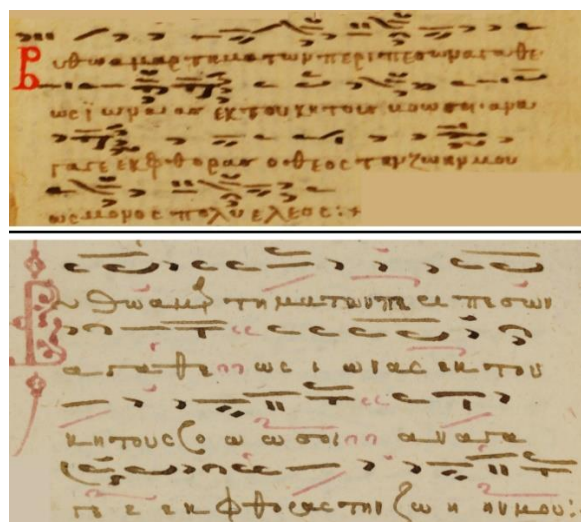 Βυθω αμαρτηματων περιπεσων αγαθε
ως ϊωνας εκ του κητους βοω σοι · ανα
γαγε εκ φθορας ο θεος την ζωην μου
ως μονος πολυελεος :+
Βυθω αμαρτηματων πεσων
αγαθε ως ι ωνας εκ του
κητους βο ω ω σοι αναγα
γε ε εκ φθορας την ζω η ην μου :